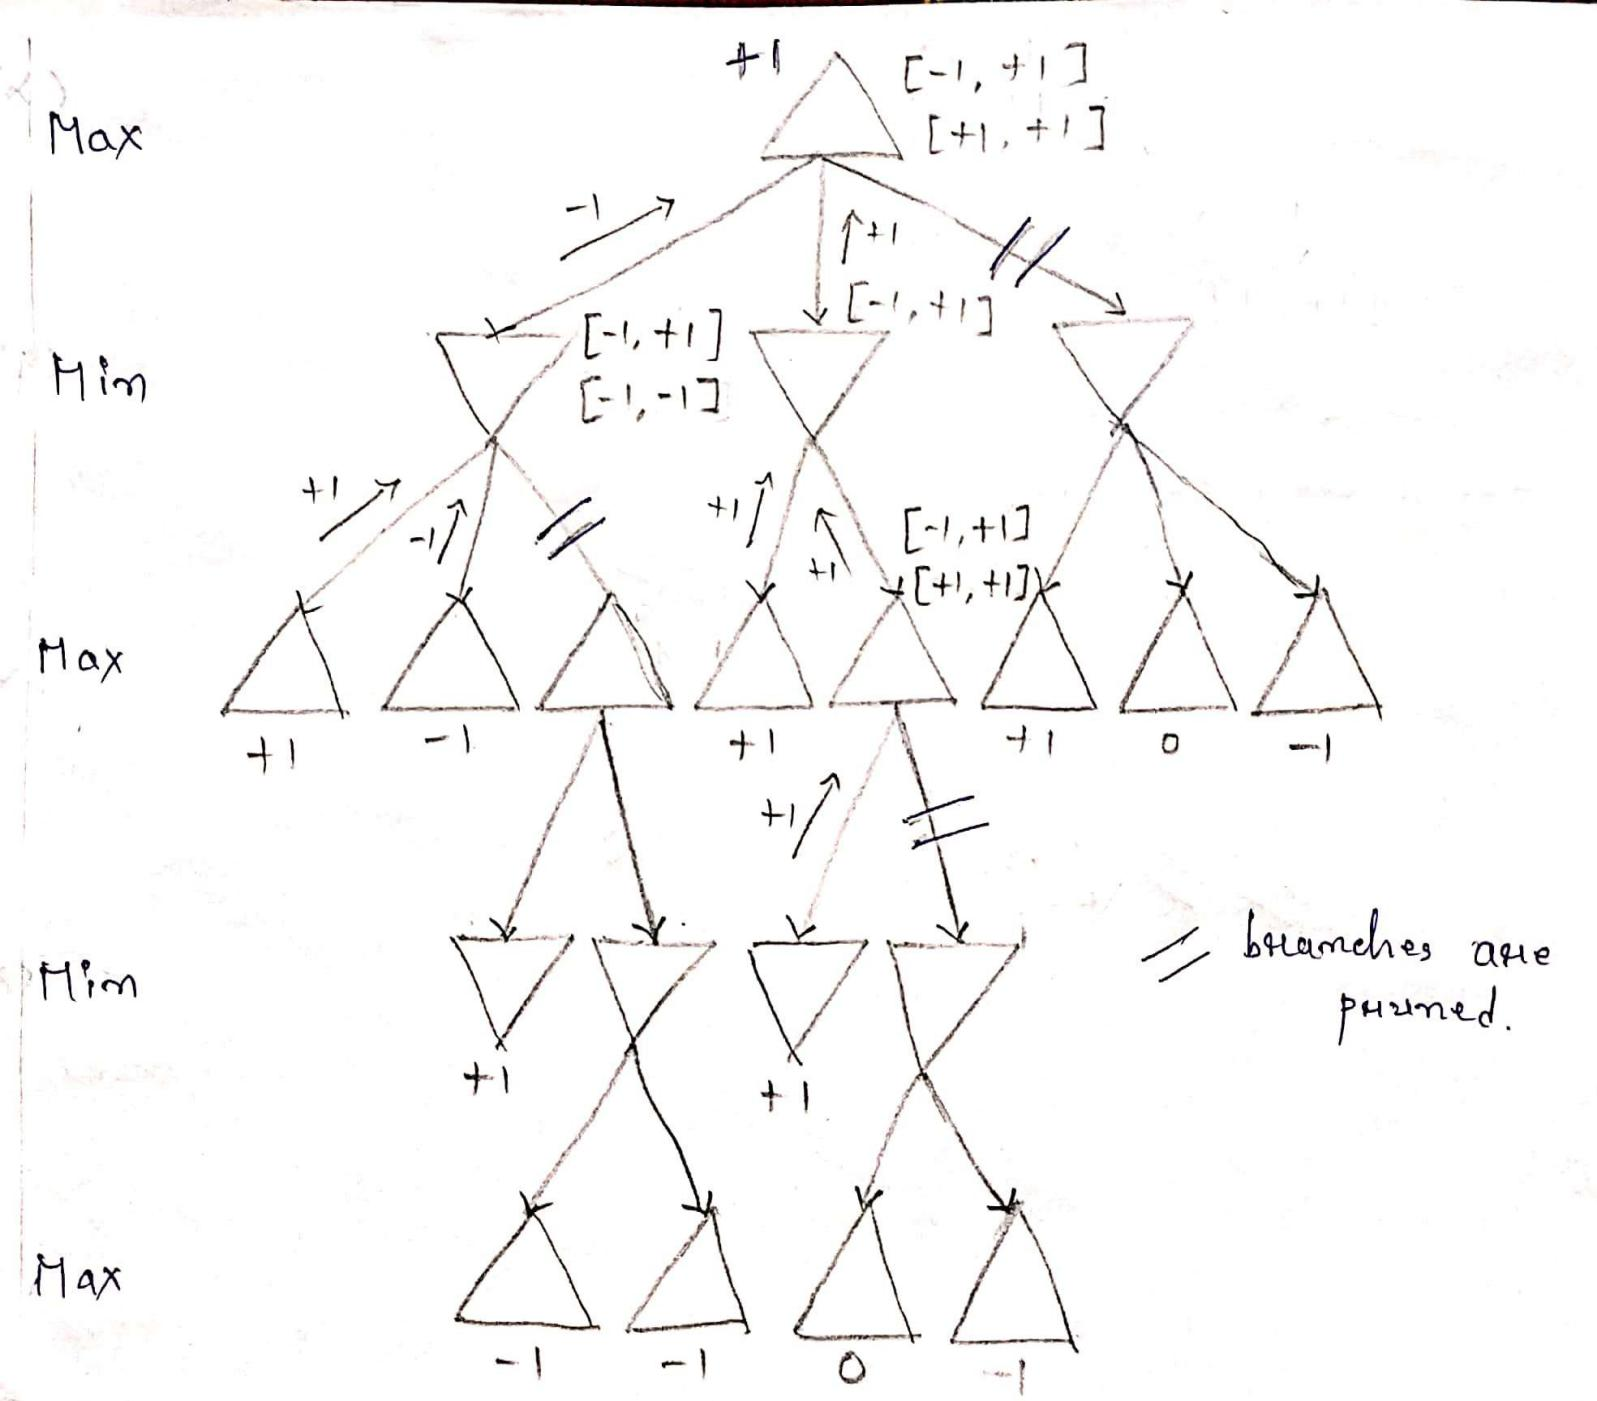 +1 [-1, +1]
Max [+1, +1]
-1 +1
[-1, +1]
Min [-1, +1]
[-1, -1]
+1 -1 +1 +1 [-1, +1]
[+1, +1]
Max
+1 -1 +1 +1 0 -1
+1
Min
branches are
pruned.
+1 +1
Max
-1 -1 0 -1